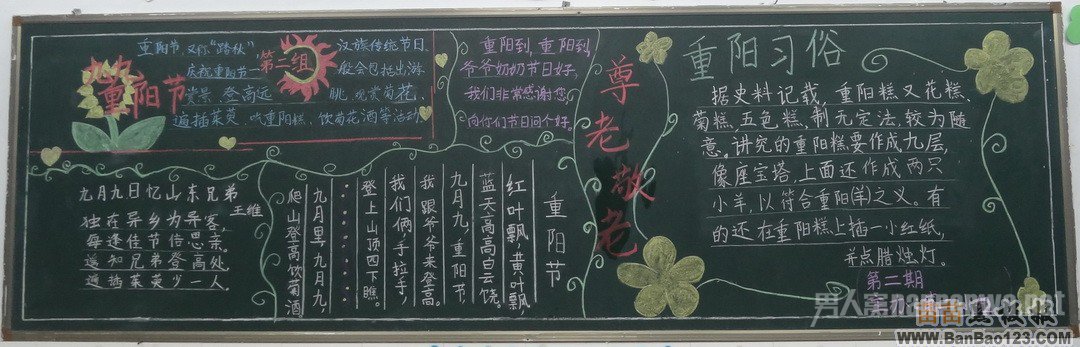 重阳节
第二组
重阳节,又称“踏秋”
汉族传统节日.
庆祝重阳节一
般会包括出游
赏景、登高远
眺、观赏菊花,
遍插茱萸、吃重阳糕、饮菊花酒等活动
重阳到,重阳到,
爷爷奶奶节日好,
我们非常感谢您,
向你们节日问个好。
九月九日忆山东兄弟
王维
独在异乡为异客,
每逢佳节倍思亲。
遥知兄弟登高处,
遍插茱萸少一人。
重阳节
红叶飘,黄叶飘,
蓝天高高白云饶。
九月九,重阳节
我跟爷爷来登高。
我们俩,手拉手,
登上山顶四下瞧。
九月里,九月九,
爬山登高饮菊酒
尊老敬老
重阳习俗
据史料记载,重阳糕又花糕、
菊糕,五色糕,制无定法,较为随
意。讲究的重阳糕要作成九层,
像座宝塔,上面还作成两只
小羊,以符合重阳(羊)之义。有
的还在重阳糕上插一小红纸,
并点腊烛灯。
第二期
男人窝nanrenwo.net
www.BanBao123.COM